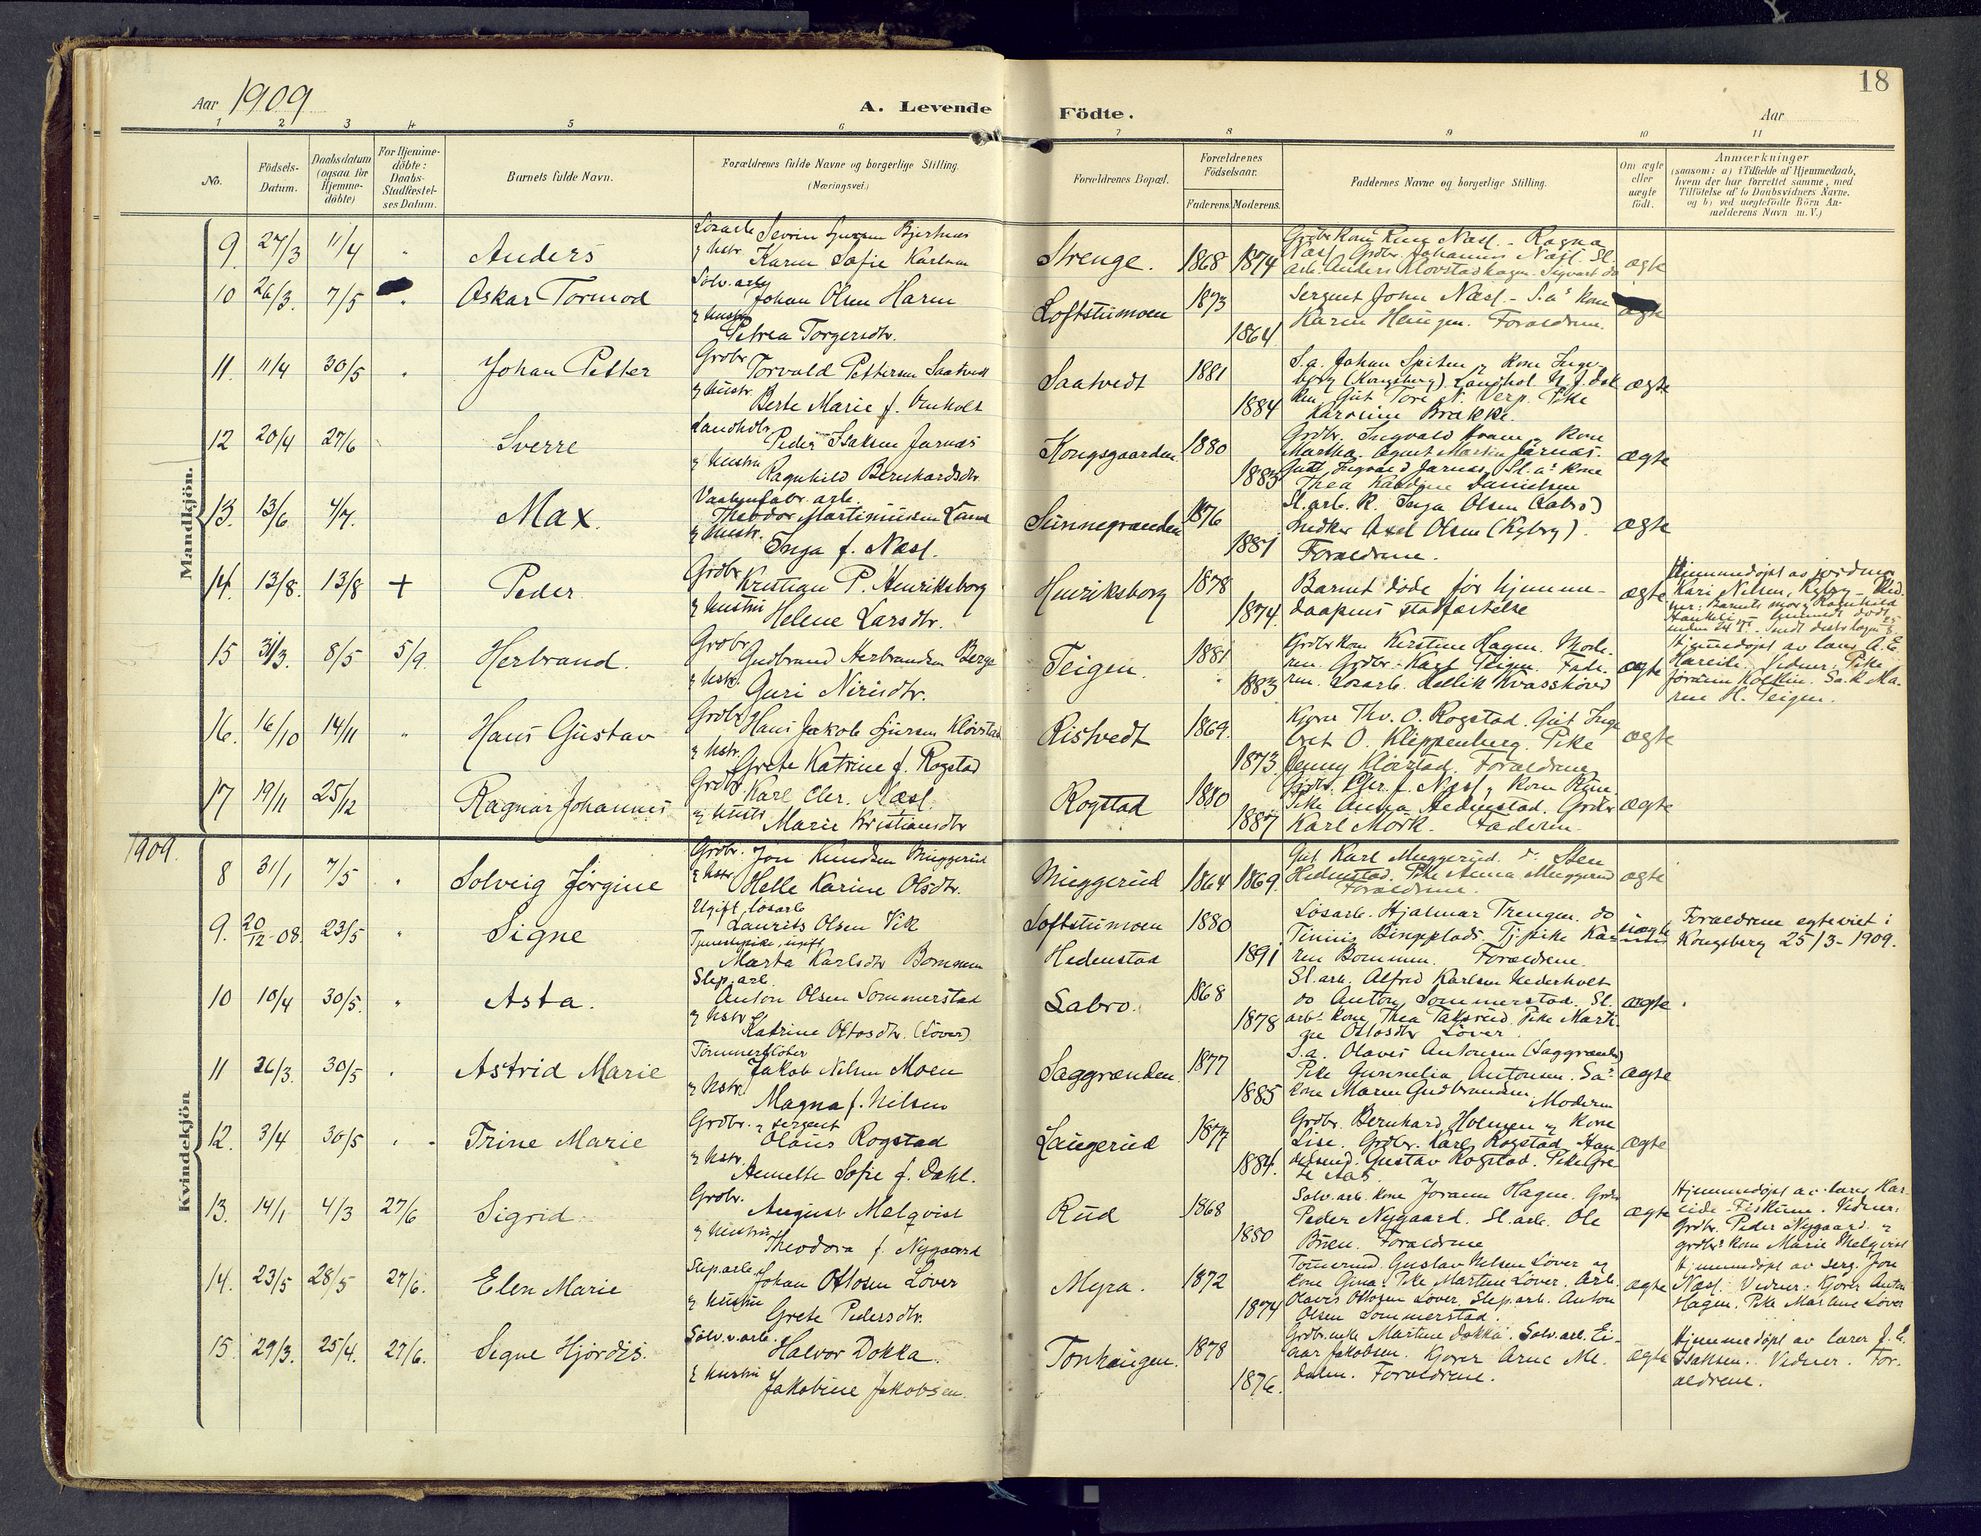 18
Aar 1909
A. Levende Födte.
Aar
1 2 3 4 5 6 7 8 9 10 11
No.
Födsels-
Datum.
Daabsdatum
(ogsaa for
Hjemme-
döbte)
For Hjemme-
döbte:
Daabs-
Stadfæstel-
ses Datum.
Barnets fulde Navn.
Forældrenes fulde Navne og borgerlige Stilling.
(Næringsvei.)
Forældrenes Bopæl.
Forældrenes
Födselsaar.
Faderens. Moderens.
Faddernes Navne og borgerlige Stilling.
Om ægte
eller
uægte
födt.
Anmærkninger
(saasom: a) i Tilfælde af Hjemmedaab,
hvem der har forrettet samme, med
Tilföielse af to Daabsvidners Navne.
og b) ved uegtefödte Börn An-
melderens Navn m. V.)
Mandkjön.
9. 27/3 11/4 " Anders
Karen Sofie Karlsen
Strenge. 1868 1874
ægte
10 26/3. 7/5 " Oskar Tormod
Johan Olsen Haren
Petrea Torgersdtr.
Loftstumoen 1873
1864.
Sergent John Næsl. - S.a's kone
Karen Haugen. Forældrene.
ægte
11. 11/4 30/5 " Johan Petter
Grdbr Torvald Pettersen Saatvedt
& hustr. Berte Marie f.
Saatvedt 1881
1884
S.a. Johan Spiten & kone Inge-
borg (Kongsberg).
Karoline Brække.
ægte
12 20/4 27/6 Sverre
Peder Isaksen Jarnæs
& hustru Ragnhild Bernhardsdtr.
Kongsgaarden 1880
1883
Grdbr. Ingvald Hvam & kone
Martha. Agent Martin Jarnæs.
Gutt Ingvald Jarnæs. Sl.a's kone
Thea Danielsen
ægte
13. 13/6 4/7. Max.
Vaabenfabr. arb.
Theodor Martiniussen Lund
& hustr. Inga f. Næsl.
Sunnegrænden 1876
1881
Sl.arb. k. Inga Olsen (Labro)
Snedker Axel Olsen (Kyberg).
Forældrene.
ægte
14. 13/8. 13/8 + Peder
Grdbr Kristian P. Henriksborg
& hustru Helene Larsdtr.
Henriksborg 1878
1874.
Barnet døde før hjemme-
daapens stadfæstelse
ægte
Hjemmedøpt av jordmor
Kari Nilsen, Kyberg - Vid-
ner: Barnets mor & Ragnhild
15 31/3. 8/5 5/9. Herbrand.
Grdbr Gudbrand Herbrandsen Berge
& hstr. Guri Nirisdtr.
Teigen. 1881
1883
Grdbr.kone Kirstine Hagen. Mode-
ren. Grdbr. Karl Teigen. Fade-
ren. Løsarb. Kittil Kvasshovd
ægte
Hjemmedøpt av lærer A. E.
Hareide. Vidner: Pike
Jørgine Kolkin. Sa.k Ma-
ren H. Teigen.
16. 16/10 14/11 " Hans Gustav
Grdbr Hans Jakob Sjursen Kløvstad
& hstr. Grete Katrine f. Rogstad
Ristvedt 1869.
1873.
Kjøre Thv. O. Rogstad. Gut Inge-
bret O. Klippenberg. Pike
Jenny Kløvstad. Forældrene.
ægte
17 19/11 25/12 Ragnar Johannes
Grdbr Karl Chr. Næsl.
& hustr Marie Kristiansdtr
Rogstad 1880
1887
Grdbr. Chr. f. Næsl & kone Rune.
Pike Anna Hedenstad. Grdbr
Karl Mörk. Faderen.
ægte
1909.
Kvindekjön
8 31/1 7/5 " Solveig Jørgine
Grdbr. Jon Knudsen Muggerud
& hstr. Helle Karine Olsdtr.
Muggerud 1864 1869.
Gut Karl Muggerud. do Sten
Hedenstad. Pike Anna Muggerud
Forældrene.
ægte
9. 20/12-08. 23/5 " Signe
Ugift løsarb
Laurits Olsen Vik
Tjenestepike, ugift
Marta Karlsdtr Bommen
Loftstumoen 1880
Hedenstad 1891
Løsarb. Hjalmar Trengen. do
Tinius Bingplads. Tj.pike Ka-
ren Bommen. Forældrene.
uægte
Forældrene egteviet i
Kongsberg 25/3-1909.
10 10/4 30/5 " Asta.
Slip.arb.
Anton Olsen Sommerstad
& hstr Katrine Ottosdtr (Løver)
Labro. 1868
1878
Sl.arb. Alfred Karlsen Nederholt
do Anton Sommerstad. Sl.
arbs kone Thea Taksrud. Pike Marti-
ne Ottosdtr Løver.
ægte.
11 26/3. 30/5 " Astrid Marie
Tømmerfløter
Jakob Nilsen Moen
& hstr. Magna f. Nilsen
Saggrænden. 1877
1885
S.a. Olaves Antonsen (Saggrænden)
Pike Gunnelia Antonsen. Sa's
kone Maren Gudbrandsen
Moderen
ægte
12. 3/4 30/5 " Trine Marie
Grdbr. & sergent
Olaus Rogstad
& hstr. Annette Sofie f. Dahl.
Laugerud 1877
1884.
Grdbr. Bernhard Holmen & kone
Lise. Grdbr. Karl Rogstad. Han-
delsmd. Gustav Rogstad. Pike Gre-
te Aas.
ægte
13. 14/1 4/3 27/6 Sigrid
Grdbr. August Melqvist
& hustru Theodora f. Nygaard
Rud 1868
1880
Sølv.arb. kone Joramn Hagen. Grdbr
Peder Nygaard. Sl.arb. Ole
Buen. Forældrene
ægte
Hjemmedøpt av lærer Har-
eide - Fiskum. Vidner:
Grdbr. Peder Nygaard &
grdbrs kone Marie Melqvist
14. 23/5 28/5 27/6. Elen Marie
Slip.arb. Johan Ottosen Løver
& hustru Grete Pedersdtr.
Myra. 1872
1874
Tømmermd. Gustav Nilsen Løver og
kone Gina. Pike Martine Løver. Arb.
Olaves Ottosen Løver. Slip.arb. Anton
Olsen Sommerstad.
ægte
Hjemmedøpt av serg. Jon
Næsl. Vidner: Kjører Anton
Hagen. Pike Martine Løver
15. 29/3. 25/4. 27/6. Signe Hjørdis.
Sølv.v.arb. Halvor Dokka.
& hustru Jakobine Jakobsen.
Tonhaugen. 1878
1876.
Grdbr.enke Martine Dokka. Sølv.arb. Ei-
nar Jakobsen. Kjører Arne Me-
dalen. Forældrene.
ægte
Hjemmedøpt av lærer J. E.
Isaksen. Vidner. For-
ældrene.